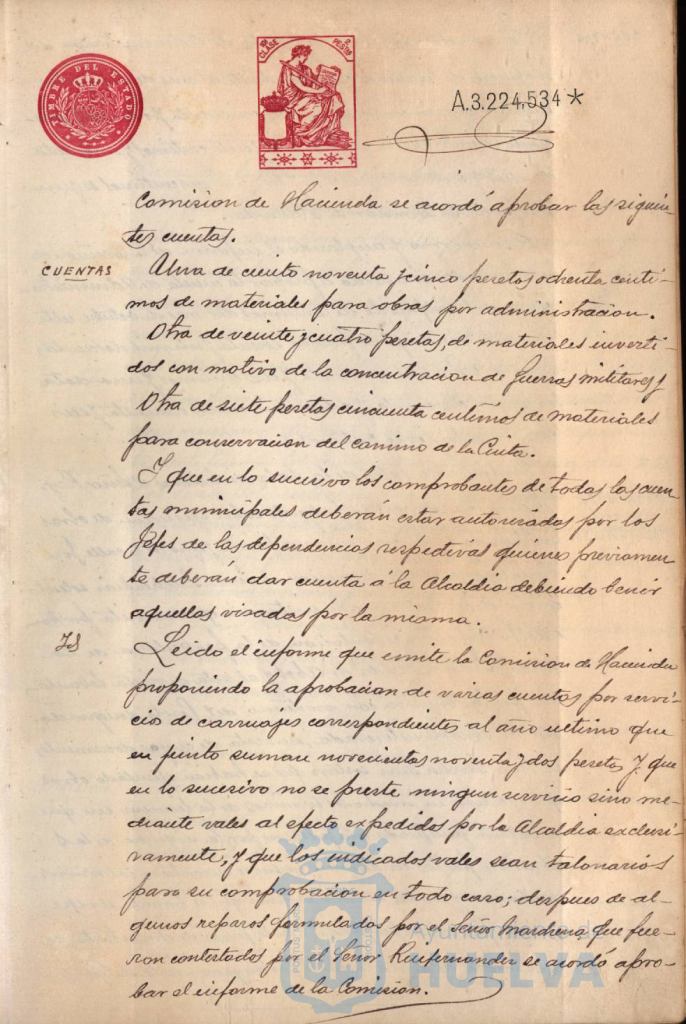 TIMBRE DEL ESTADO
10ª CLASE
2 PESTAS
A.3.224,534*
Comision de Hacienda se acordó aprobar las siguien-
tes cuentas.
CUENTAS
Una de ciento noventa y cinco pesetas ochenta centi-
mos de materiales para obras por administracion.
Otra de veinte y cuatro pesetas, de materiales inverti-
dos con motivo de la concentracion de fuerzas militares y
Otra de siete pesetas cincuenta centimos de materiales
para conservacion del camino de la Cinta.
Y que en lo sucesivo los comprobantes de todas las cuen-
tas municipales deberán estar autorizados por los
Jefes de las dependencias respectivas quienes previamen-
te deberán dar cuenta á la Alcaldia debiendo benir
aquellas visadas por la misma.
Id
Leido el informe que emite la Comision de Hacienda
proponiendo la aprobacion de varias cuentas por servi-
cios de carruajes correspondientes al año ultimo que
en junto suman novecientas noventa y dos pesetas y que
en lo sucesivo no se preste ningun servicio sino me-
diante vales al efecto expedidos por la Alcaldia exclusi-
vamente, y que los indicados vales sean talonarios
para su comprobacion en todo caso; despues de al-
gunos reparos formulados por el Señor Marchena que fue-
ron contestados por el Señor Ruifernandez se acordó apro-
bar el informe de la Comision.
Ayuntamiento de
HUELVA